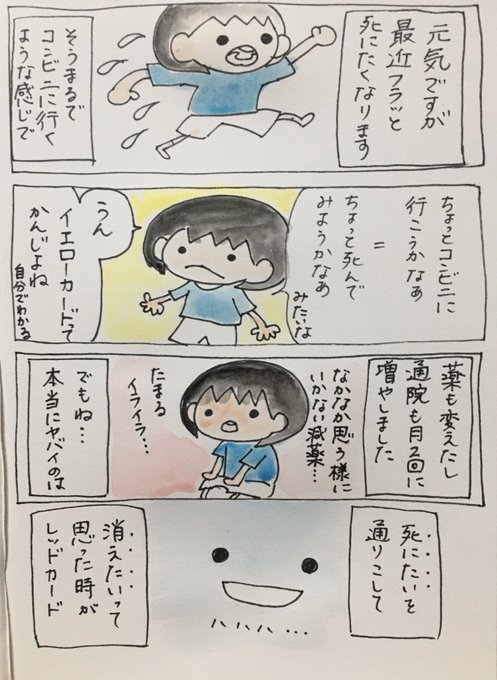 元気ですが
最近フラッと
死にたくなります
そうまるで
コンビニに行く
ような感じで
ちょっとコンビニに
行こうかなあ
=
ちょっと死んで
みようかなあ
みたいな
うん
イエローカードって
かんじよね
自分でわかる
薬も変えたし
通院も月2回に
増やしました
なかなか思う様に
いかない減薬…
たまる
イライラ…
でもね…
本当にヤバイのは
死にたいを
通りこして
ハハハ…
消えたいって
思った時が
レッドカード